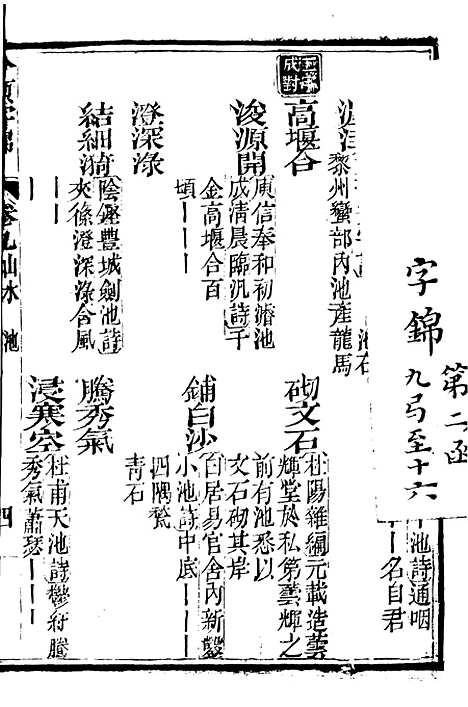 字錦
第二函
九弓至十六
池詩通咽
丨名自君
黎州蠻部內池產龍馬
池石
砌文石
杜陽雜編元載造蕓
輝堂於私第蕓輝之
前有池悉以
文石砌其岸
高堰合
浚源開
庾信奉和初濬池
成清晨臨汎詩千
金高堰合百
頃丨丨丨
鋪白沙
白居易官舍內新鑿
小池詩中底丨丨丨
四隅甃
青石
澄深淥
結細漪
陰鏗豐城劍池詩
夾篠澄深淥含風
丨丨丨
騰秀氣
浸寒空
杜甫天池詩鬱紆騰
秀氣蕭瑟丨丨丨
字錦
卷九山水
池
四